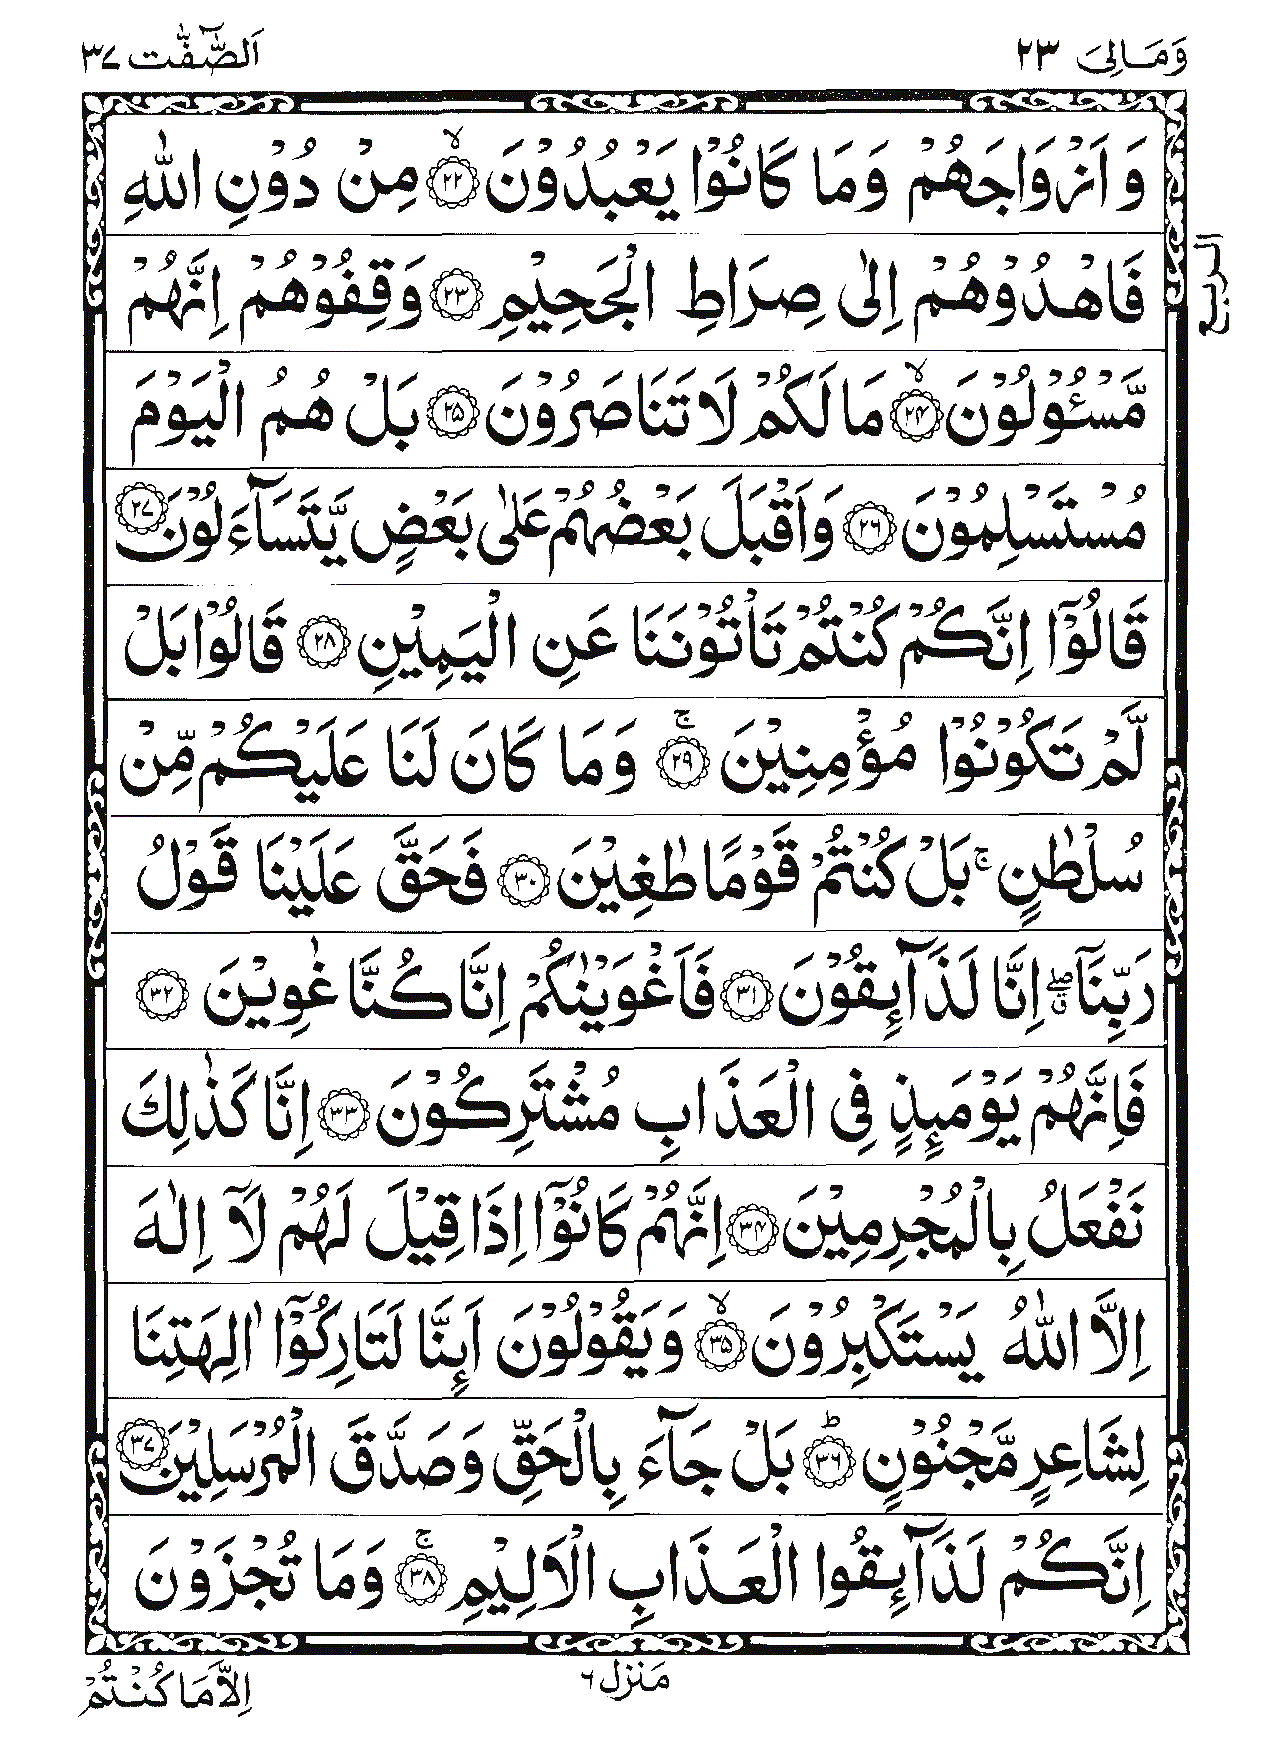 وَمَالِیَ ٢٣
اَلصّٰٓفّٰت ٣٧
وَ اَزْوَاجَهُمْ وَمَا كَانُوْا يَعْبُدُوْنَ ۙ﴿٢٢﴾ مِنْ دُوْنِ اللّٰهِ
فَاهْدُوْهُمْ اِلٰى صِرَاطِ الْجَحِيْمِ ﴿٢٣﴾ وَقِفُوْهُمْ اِنَّهُمْ
مَّسْـُٔوْلُوْنَ ۙ﴿٢٤﴾ مَا لَكُمْ لَا تَنَاصَرُوْنَ ﴿٢٥﴾ بَلْ هُمُ الْيَوْمَ
مُسْتَسْلِمُوْنَ ﴿٢٦﴾ وَاَقْبَلَ بَعْضُهُمْ عَلٰى بَعْضٍ يَّتَسَآءَلُوْنَ ﴿٢٧﴾
قَالُوْٓا اِنَّكُمْ كُنْتُمْ تَاْتُوْنَنَا عَنِ الْيَمِيْنِ ﴿٢٨﴾ قَالُوْا بَلْ
لَّمْ تَكُوْنُوْا مُؤْمِنِيْنَ ۚ﴿٢٩﴾ وَمَا كَانَ لَنَا عَلَيْكُمْ مِّنْ
سُلْطٰنٍ ۚ بَلْ كُنْتُمْ قَوْمًا طٰغِيْنَ ﴿٣٠﴾ فَحَقَّ عَلَيْنَا قَوْلُ
رَبِّنَآ ۖۗ اِنَّا لَذَآىِٕقُوْنَ ﴿٣١﴾ فَاَغْوَيْنٰكُمْ اِنَّا كُنَّا غٰوِيْنَ ﴿٣٢﴾
فَاِنَّهُمْ يَوْمَىِٕذٍ فِى الْعَذَابِ مُشْتَرِكُوْنَ ﴿٣٣﴾ اِنَّا كَذٰلِكَ
نَفْعَلُ بِالْمُجْرِمِيْنَ ﴿٣٤﴾ اِنَّهُمْ كَانُوْٓا اِذَا قِيْلَ لَهُمْ لَآ اِلٰهَ
اِلَّا اللّٰهُ يَسْتَكْبِرُوْنَ ۙ﴿٣٥﴾ وَيَقُوْلُوْنَ اَىِٕنَّا لَتَارِكُوْٓا اٰلِهَتِنَا
لِشَاعِرٍ مَّجْنُوْنٍ ؕ﴿٣٦﴾ بَلْ جَآءَ بِالْحَقِّ وَصَدَّقَ الْمُرْسَلِيْنَ ﴿٣٧﴾
اِنَّكُمْ لَذَآىِٕقُوا الْعَذَابِ الْاَلِيْمِ ۚ﴿٣٨﴾ وَمَا تُجْزَوْنَ
الربع
مَنزل ٦
اِلَّا مَا كُنْتُمْ